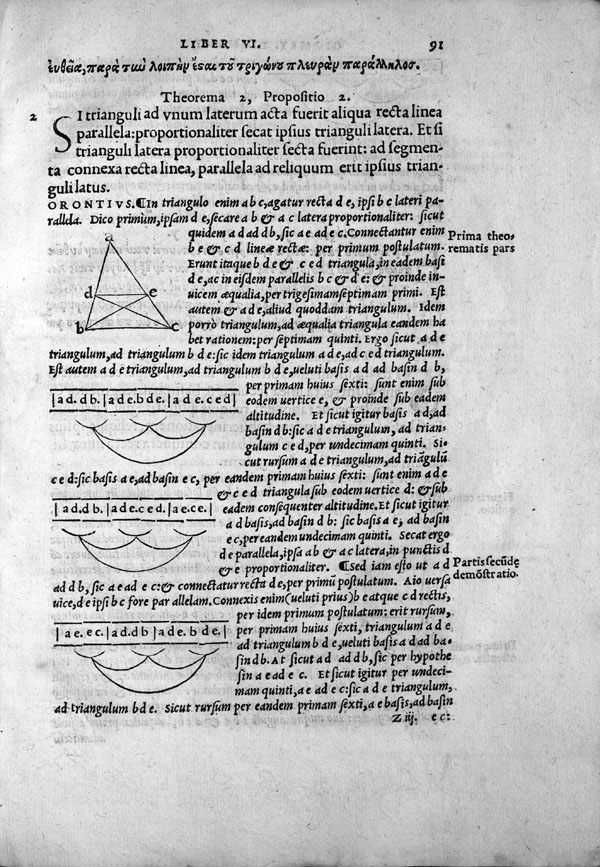 LIBER VI. 91
ἐυθεῖα, παρὰ τὼ λοιπὴν ἔσαι τοῦ τριγώνου πλευρὰν παράλληλος.
Theorema 2, Propositio 2.
2 SI trianguli ad vnum laterum acta fuerit aliqua recta linea
parallela: proportionaliter secat ipsius trianguli latera. Et si
trianguli latera proportionaliter secta fuerint: ad segmen-
ta connexa recta linea, parallela ad reliquum erit ipsius trian-
guli latus.
ORONTIVS. ¶In triangulo enim a b c, agatur recta d e, ipsi b c lateri pa-
rallela. Dico primùm, ipsam d e, secare a b & a c latera proportionaliter: sicut
quidem a d ad d b, sic a e ad e c. Connectantur enim
b e & c d lineæ rectæ: per primum postulatum.
Prima theo-
rematis pars
Erunt itaque b d e & c e d triangula, in eadem basi
d e, ac in eisdem parallelis b c & d e: & proinde in-
uicem æqualia, per trigesimamseptimam primi. Est
autem & a d e, aliud quoddam triangulum. Idem
porrò triangulum, ad æqualia triangula eandem ha
bet rationem: per septimam quinti. Ergo sicut a d e
a
d e
b c
triangulum, ad triangulum b d e: sic idem triangulum a d e, ad c e d triangulum.
Est autem a d e triangulum, ad triangulum b d e, ueluti basis a d ad basin d b,
per primam huius sexti: sunt enim sub
eodem uertice e, & proinde sub eadem
altitudine. Et sicut igitur basis a d, ad
basin d b: sic a d e triangulum, ad trian-
gulum c e d, per undecimam quinti. Si-
cut rursum a d e triangulum, ad triãgulũ
| a d. d b. | a d e. b d e. | a d e. c e d |
c e d: sic basis a e, ad basin e c, per eandem primam huius sexti: sunt enim a d e
& c e d triangula sub eodem uertice d: & sub
eadem consequenter altitudine. Et sicut igitur
a d basis, ad basin d b: sic basis a e, ad basin
e c, per eandem undecimam quinti. Secat ergo
d e parallela, ipsa a b & a c latera, in punctis d
& e proportionaliter. ¶Sed iam esto ut a d
| a d. d b. | a d e. c e d. | a e. c e. |
Partis secũdę
demõstratio.
ad d b, sic a e ad e c: & connectatur recta d e, per primũ postulatum. Aio uersa
uice, d e ipsi b c fore parallelam. Connexis enim (ueluti prius) b e atque c d rectis,
per idem primum postulatum: erit rursum,
per primam huius sexti, triangulum a d e
ad triangulum b d e, ueluti basis a d ad ba-
sin d b. At sicut a d ad d b, sic per hypothe
sin a e ad e c. Et sicut igitur per undeci-
mam quinti, a e ad e c: sic a d e triangulum,
| a e. e c. | a d. d b | a d e. b d e. |
ad triangulum b d e. Sicut rursum per eandem primam sexti, a e basis, ad basin
Z iij. e c: